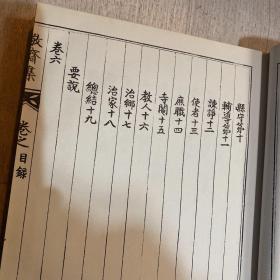 縣守第十
輔導第十一
諫諍十二
使者十三
庶職十四
寺閹十五
教人十六
治鄉十七
治家十八
總結十九
要說
卷六
敬齋集
卷之
目錄